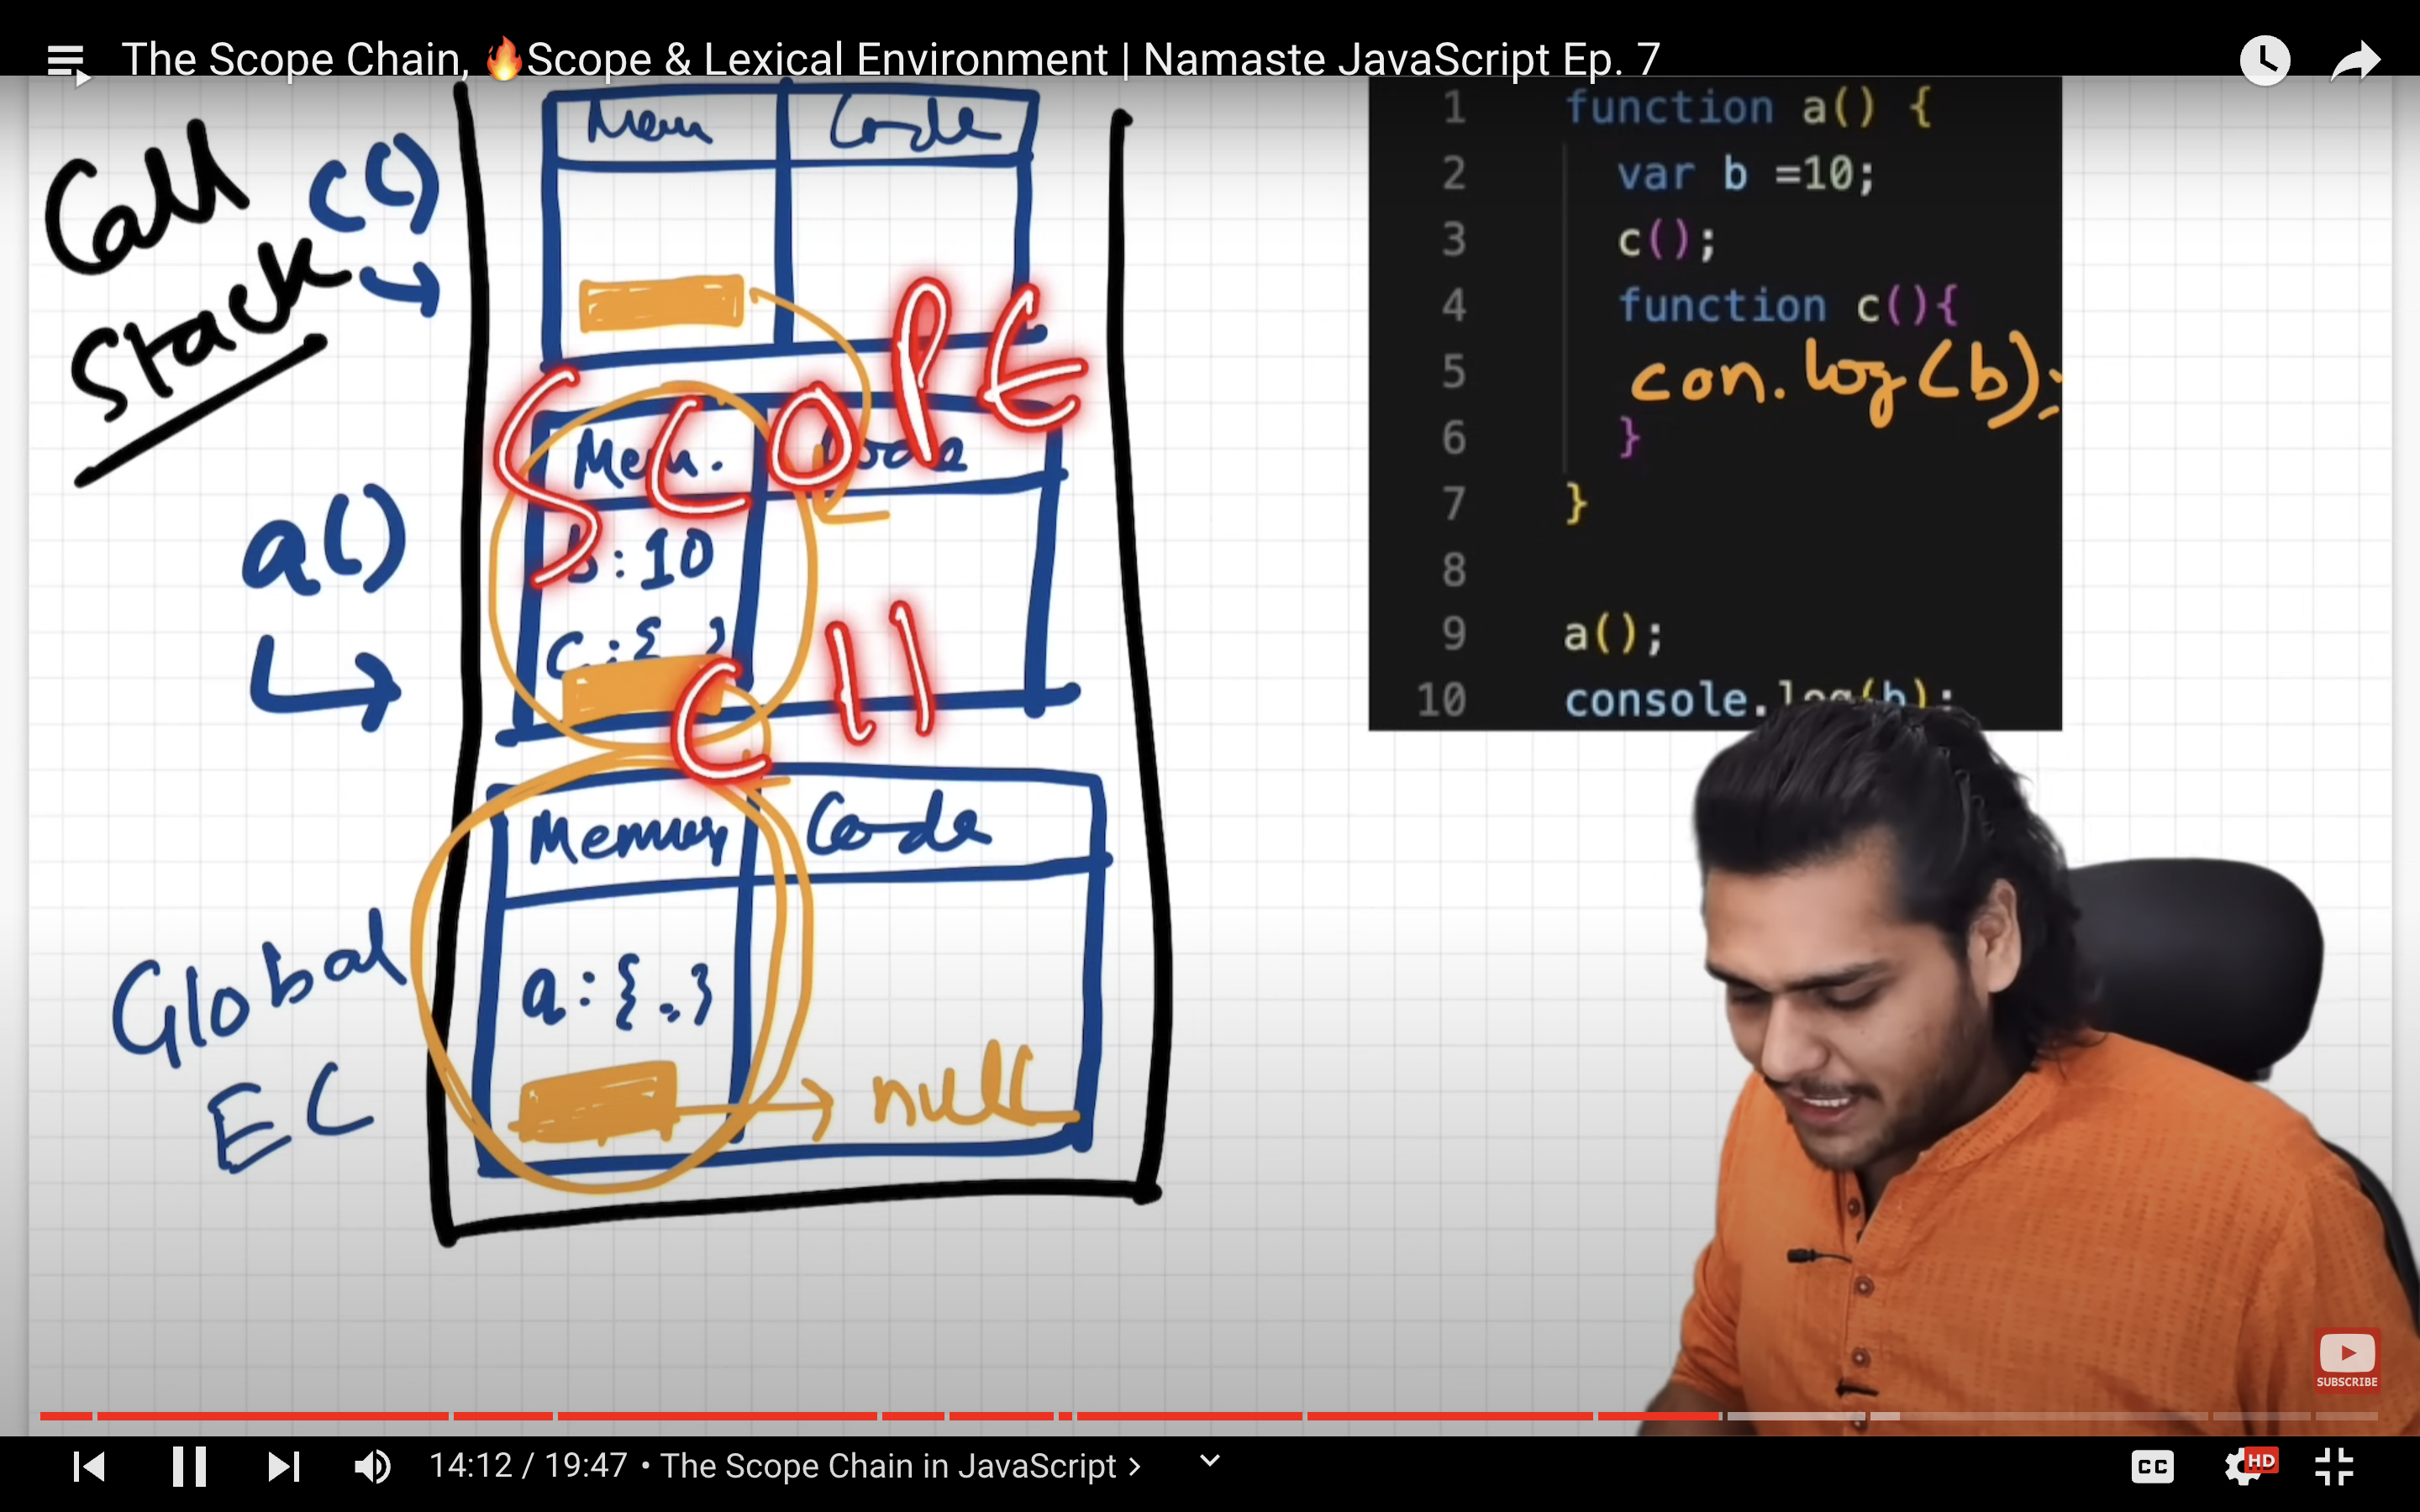 The Scope Chain, 🔥Scope & Lexical Environment | Namaste JavaScript Ep. 7
Call Stack
c()
Mem Code
SCOPE
a()
Mem. Code
b:10
c:{ }
C
Global EC
Memory Code
a:{.}
null
1 function a() {
2 var b =10;
3 c();
4 function c(){
5 con.log(b);
6 }
7 }
8
9 a();
10 console.log(b);
SUBSCRIBE
14:12 / 19:47 • The Scope Chain in JavaScript >
CC
HD